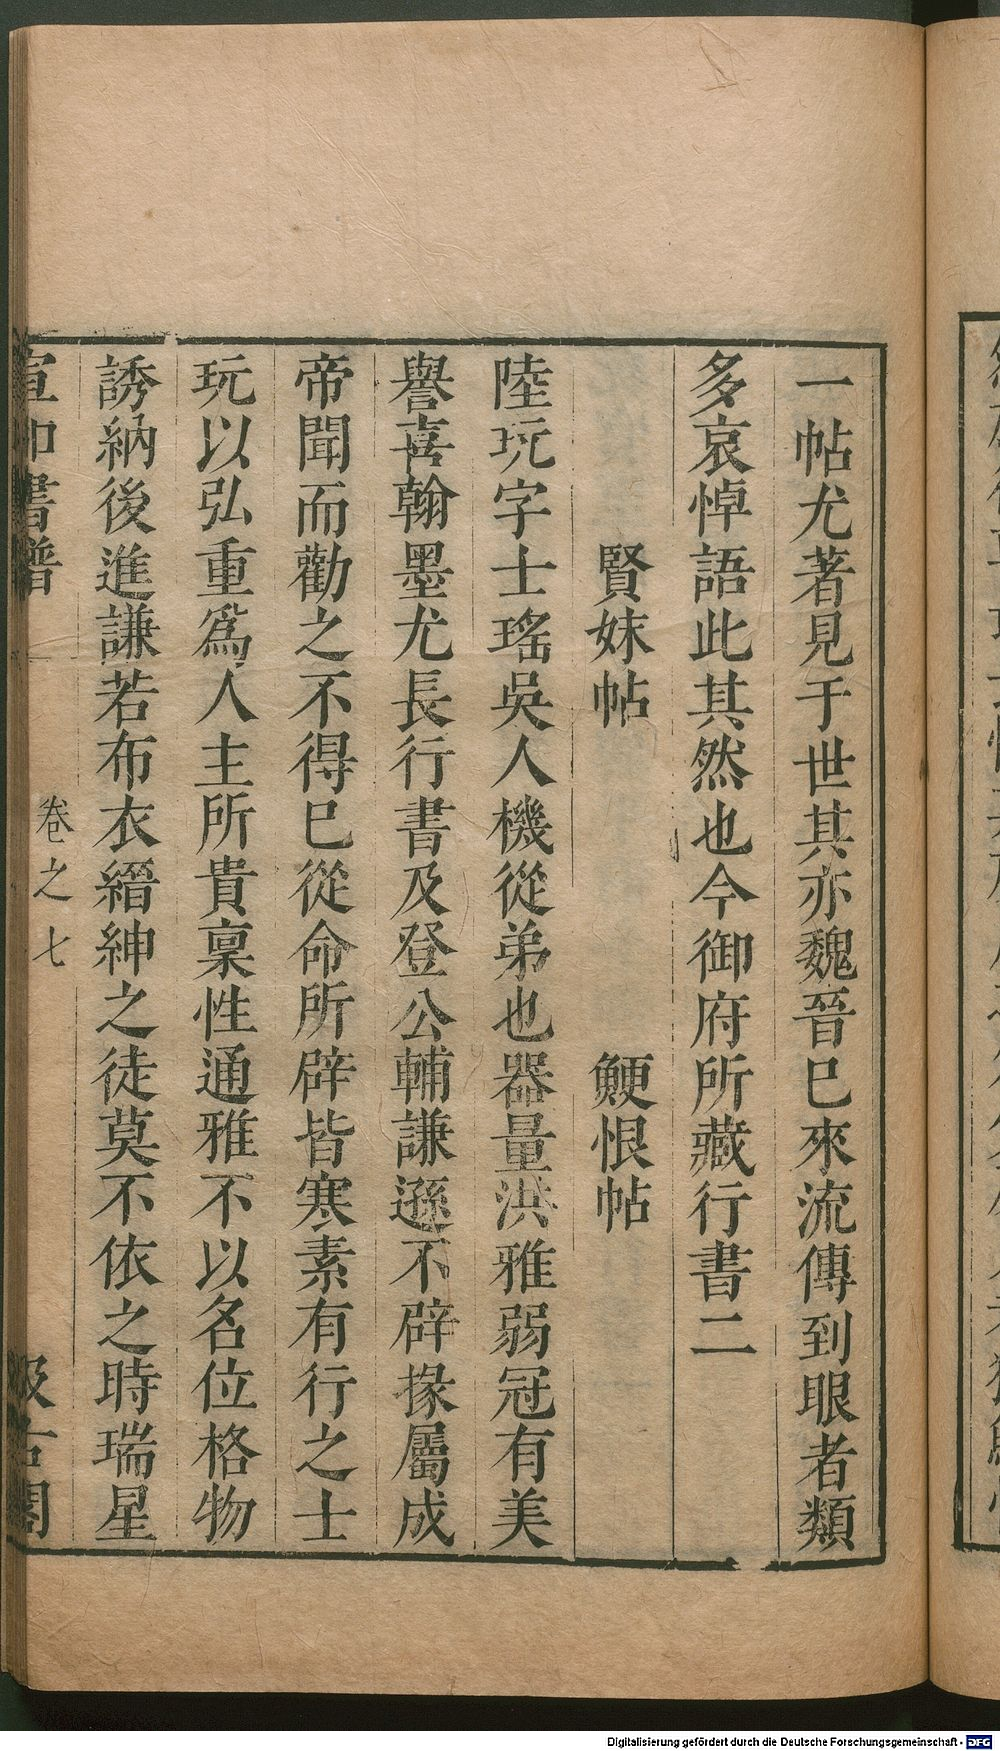 一帖尤著見于世其亦魏晉巳來流傳到眼者類
多哀悼語此其然也今御府所藏行書二
賢妹帖　鯁恨帖
陸玩字士瑤吳人機從弟也器量洪雅弱冠有美
譽喜翰墨尤長行書及登公輔謙遜不辟掾屬成
帝聞而勸之不得巳從命所辟皆寒素有行之士
玩以弘重爲人主所貴稟性通雅不以名位格物
誘納後進謙若布衣縉紳之徒莫不依之時瑞星
宣和書譜　卷之七　汲古閣
Digitalisierung gefördert durch die Deutsche Forschungsgemeinschaft - DFG